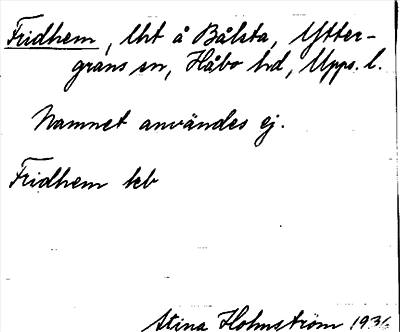 Fridhem, lht å Bålsta, Ytter-
grans sn, Håbo hd, Upps. l.
Namnet användes ej.
Fridhem kb
Stina Holmström 1936